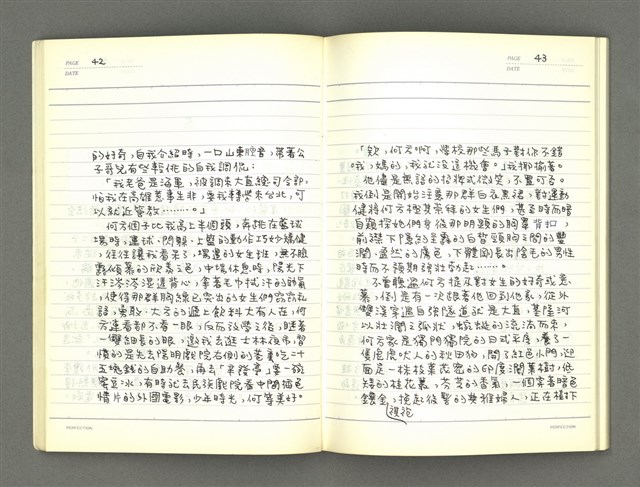 PAGE 42
DATE
的好奇，自我介紹時，一口山東腔音，帶著公
子哥兒有些輕佻的自我調侃：
「我老爸是海軍，被調來大直總司令部，
怕我在高雄惹事生非，要我轉學來台北，可
以就近管教………。」
何方個子比我高上半個頭，奔挑在籃球
場時，運球、閃躲、上籃的動作巧妙矯健
，往往讓我看呆；場邊的女生班，無不臉
露傾慕的欣羨之色，中場休息時，陽光下
汗涔涔溼透背心，拿著毛巾拭汗的帥氣
，使得那群胸線已突出的女生們竊竊私
語，更敢、大方的遞上飲料大有人在，何
方連看都不看一眼，反而放學之後，瞇著
一雙細長的眼，邀我去逛士林夜市，習
慣的是先去陽明戲院右側的巷裏吃二十
五塊錢的自助餐，再去「辛發亭」享一碗
蜜豆冰，有時就去民族戲院看中間插色
情片的外國電影，少年時光，何等美好。
PERFECTION
PAGE 43
DATE
「欸，何方啊，學校那些馬子對你不錯
。我，媽的，我就沒這機會。」我揶揄著。
他儘是無語的拾抛式微笑，不置可否。
我倒是開始注意那群白衣黑裙，對運動
健將何方極其崇拜的女生們，甚至時而暗
自窺探她們身後那明顯的胸罩背扣，
前襟下隱約呈露的白皙頸胸之間的豐
潤、盎然的膚色，下體側長出陰毛的男性
時而不預期的壯勃起……。
不曾聽過何方提及對女生的好奇或意
慕，倒是有一次跟著他回到他家，從外
雙溪穿過自強隧道就是大直，基隆河
以壯濶之弧狀，蜿蜒的流淌而來，
何方家是獨門獨院的日式平房，養了一
隻龐然嚇人的秋田狗，開了紅色小門，迎
面是一株枝葉茂密的印度濶葉樹，低
矮的桂花叢，芬芳的香氣，一個穿著暗色
鑲金，挽起後髻的典雅婦人，正在樹下
旗袍
PERFECTION